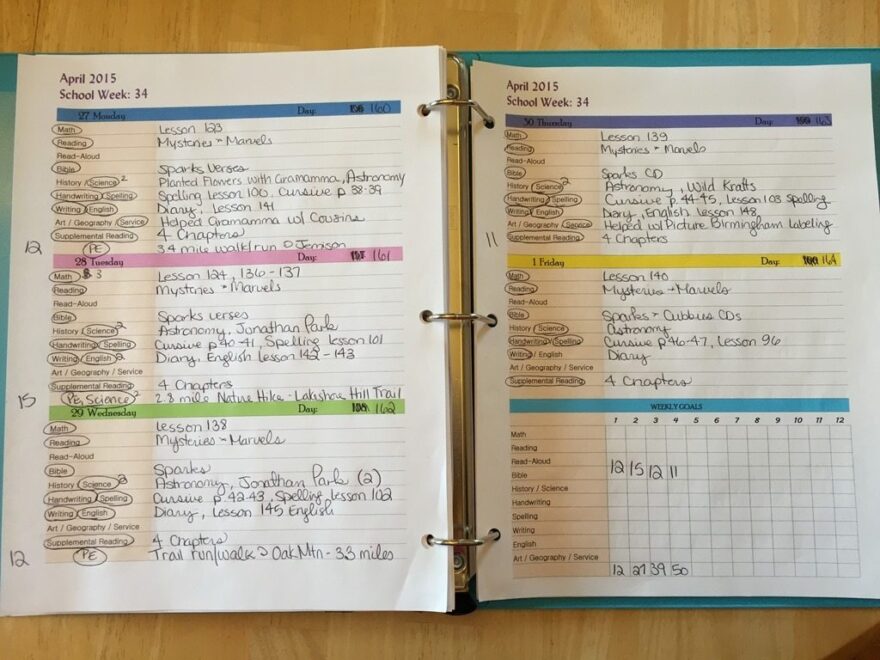 April 2015
School Week: 34
27 Monday Day: 160
Math Lesson 123
Reading Mysteries + Marvels
Read-Aloud
Bible Sparks Verses
History / Science 2 Planted Flowers with Gramamma, Astronomy
Handwriting / Spelling Spelling Lesson 100, Cursive p 38-39
Writing / English Diary, Lesson 141
Art / Geography / Service Helped Gramamma w/ Cousins
Supplemental Reading 4 Chapters
12 PE 3.4 mile walk/run @ Jemison
28 Tuesday Day: 161
Math 3 Lesson 124, 136-137
Reading Mysteries + Marvels
Read-Aloud
Bible Sparks verses
History / Science 2 Astronomy, Jonathan Park
Handwriting / Spelling Cursive p 40-41, Spelling Lesson 101
Writing / English 2 Diary, English Lesson 142-143
Art / Geography / Service
Supplemental Reading 4 Chapters
15 PE, Science 2.8 mile Nature Hike - Lakeshore Hill Trail
29 Wednesday Day: 162
Math Lesson 138
Reading Mysteries + Marvels
Read-Aloud
Bible Sparks
History / Science 3 Astronomy, Jonathan Park (2)
Handwriting / Spelling Cursive p 42-43, Spelling Lesson 102
Writing / English Diary, Lesson 145 English
Art / Geography / Service
Supplemental Reading 4 Chapters
12 PE Trail run/walk @ Oak Mtn - 3.3 miles
April 2015
School Week: 34
30 Thursday Day: 163
Math Lesson 139
Reading Mysteries + Marvels
Read-Aloud
Bible Sparks CD
History / Science 2 Astronomy, Wild Kratts
Handwriting / Spelling Cursive p. 44-45, Lesson 103 Spelling
Writing / English Diary, English Lesson 148
Art / Geography / Service Helped w/ Picture Birmingham Labeling
11 Supplemental Reading 4 Chapters
1 Friday Day: 164
Math Lesson 140
Reading Mysteries + Marvels
Read-Aloud
Bible Sparks + Cubbies CDs
History / Science Astronomy
Handwriting / Spelling Cursive p 46-47, Lesson 96
Writing / English Diary
Art / Geography / Service
Supplemental Reading 4 Chapters
WEEKLY GOALS
1 2 3 4 5 6 7 8 9 10 11 12
Math
Reading
Read-Aloud
Bible 12 15 12 11
History / Science
Handwriting
Spelling
Writing
English
Art / Geography / Service
12 27 39 50